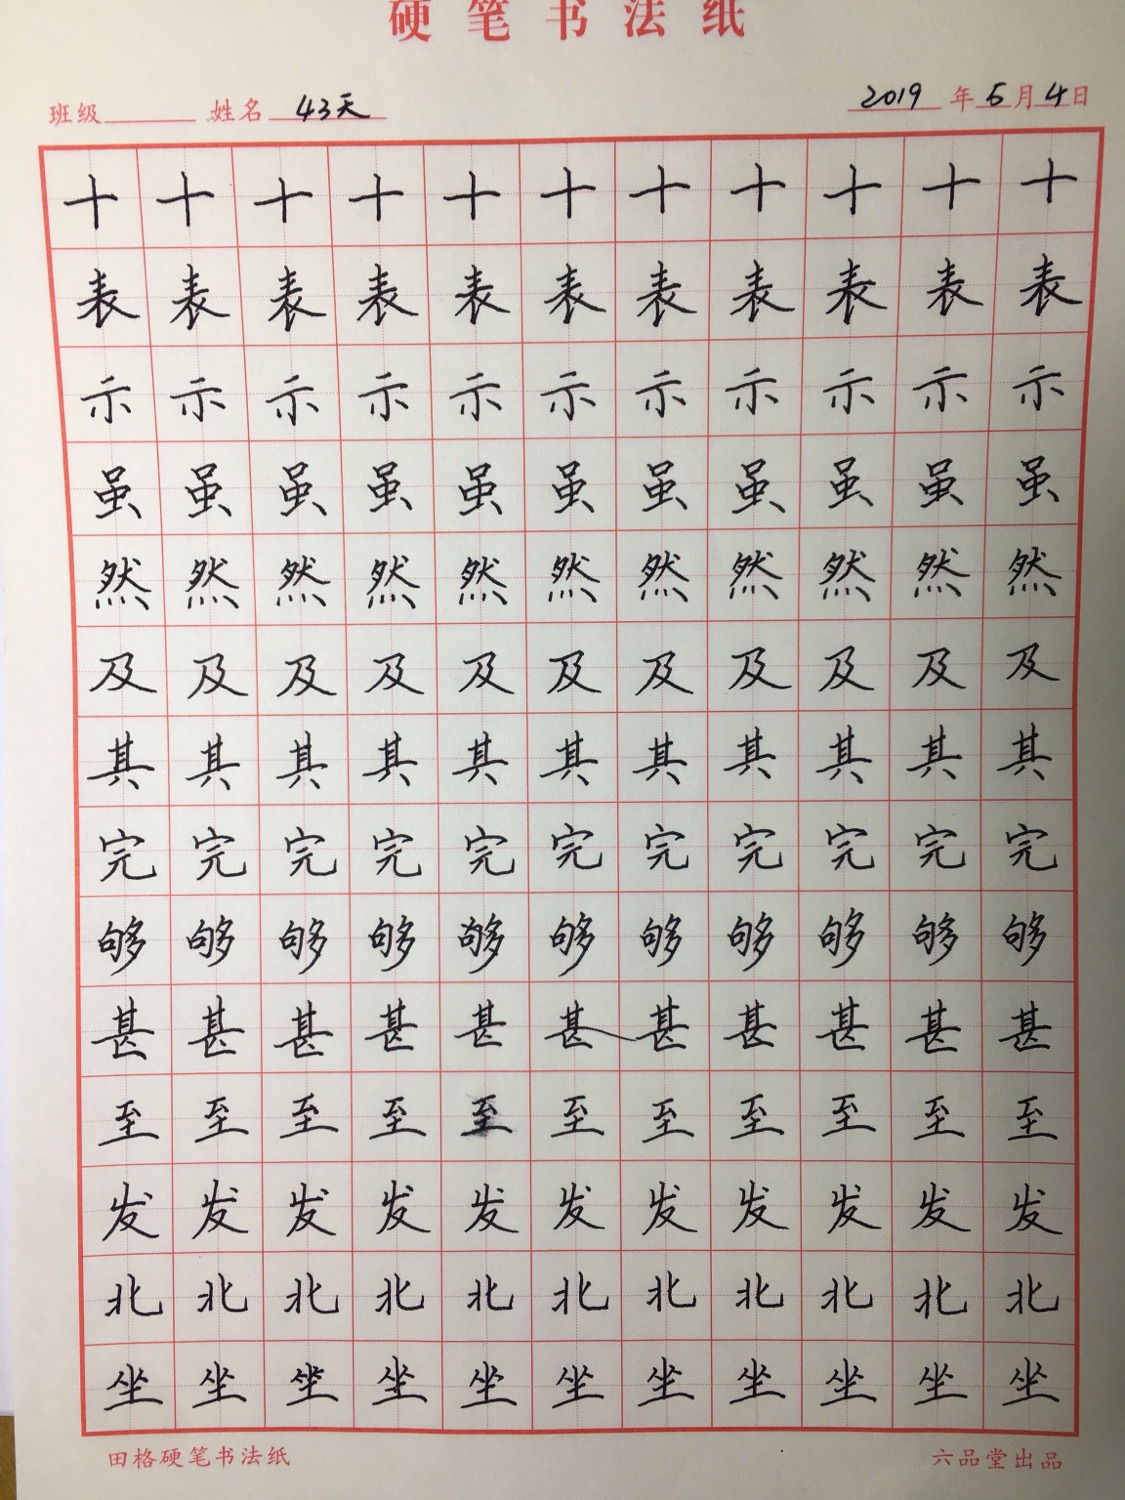 硬笔书法纸
班级 姓名 43天 2019年5月4日
十十十十十十十十十十十
表表表表表表表表表表表
示示示示示示示示示示示
虽虽虽虽虽虽虽虽虽虽虽
然然然然然然然然然然然
及及及及及及及及及及及
其其其其其其其其其其其
完完完完完完完完完完完
够够够够够够够够够够够
甚甚甚甚甚甚甚甚甚甚甚
至至至至至至至至至至至
发发发发发发发发发发发
北北北北北北北北北北北
坐坐坐坐坐坐坐坐坐坐坐
田格硬笔书法纸 六品堂出品